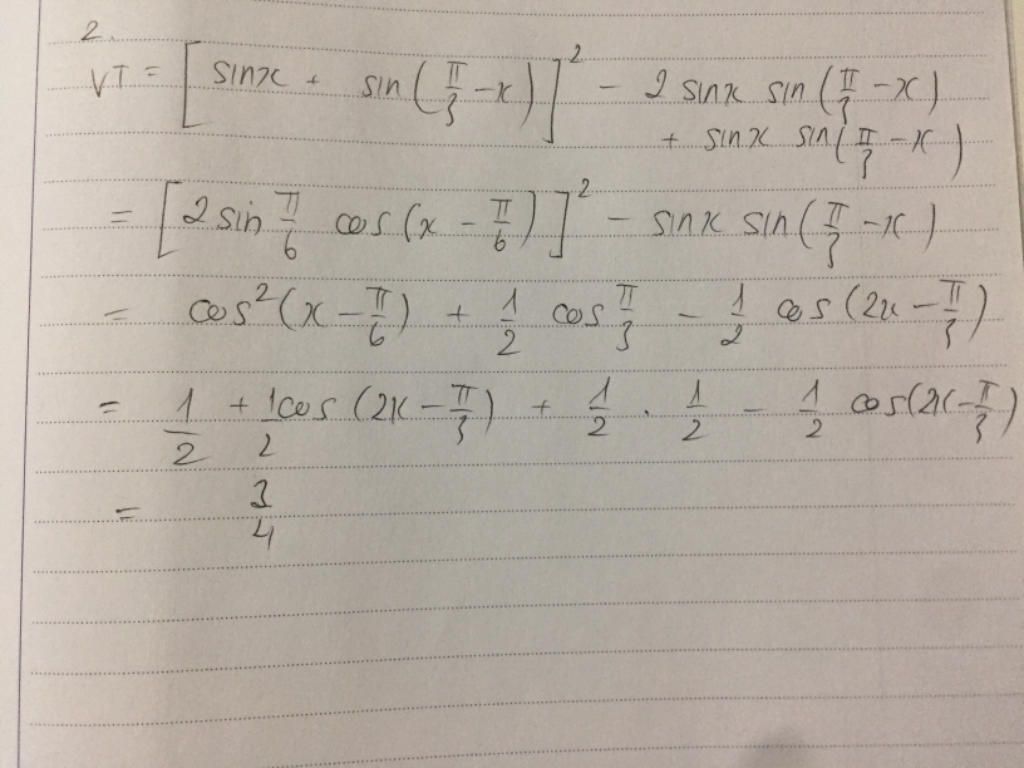 2.
VT = [sinx + sin(π/3 - x)]² - 2 sinx sin(π/3 - x)
+ sinx sin(π/3 - x)
= [2 sin π/6 cos(x - π/6)]² - sinx sin(π/3 - x)
= cos²(x - π/6) + 1/2 cos π/3 - 1/2 cos(2x - π/3)
= 1/2 + 1/2 cos(2x - π/3) + 1/2 . 1/2 - 1/2 cos(2x - π/3)
= 3/4